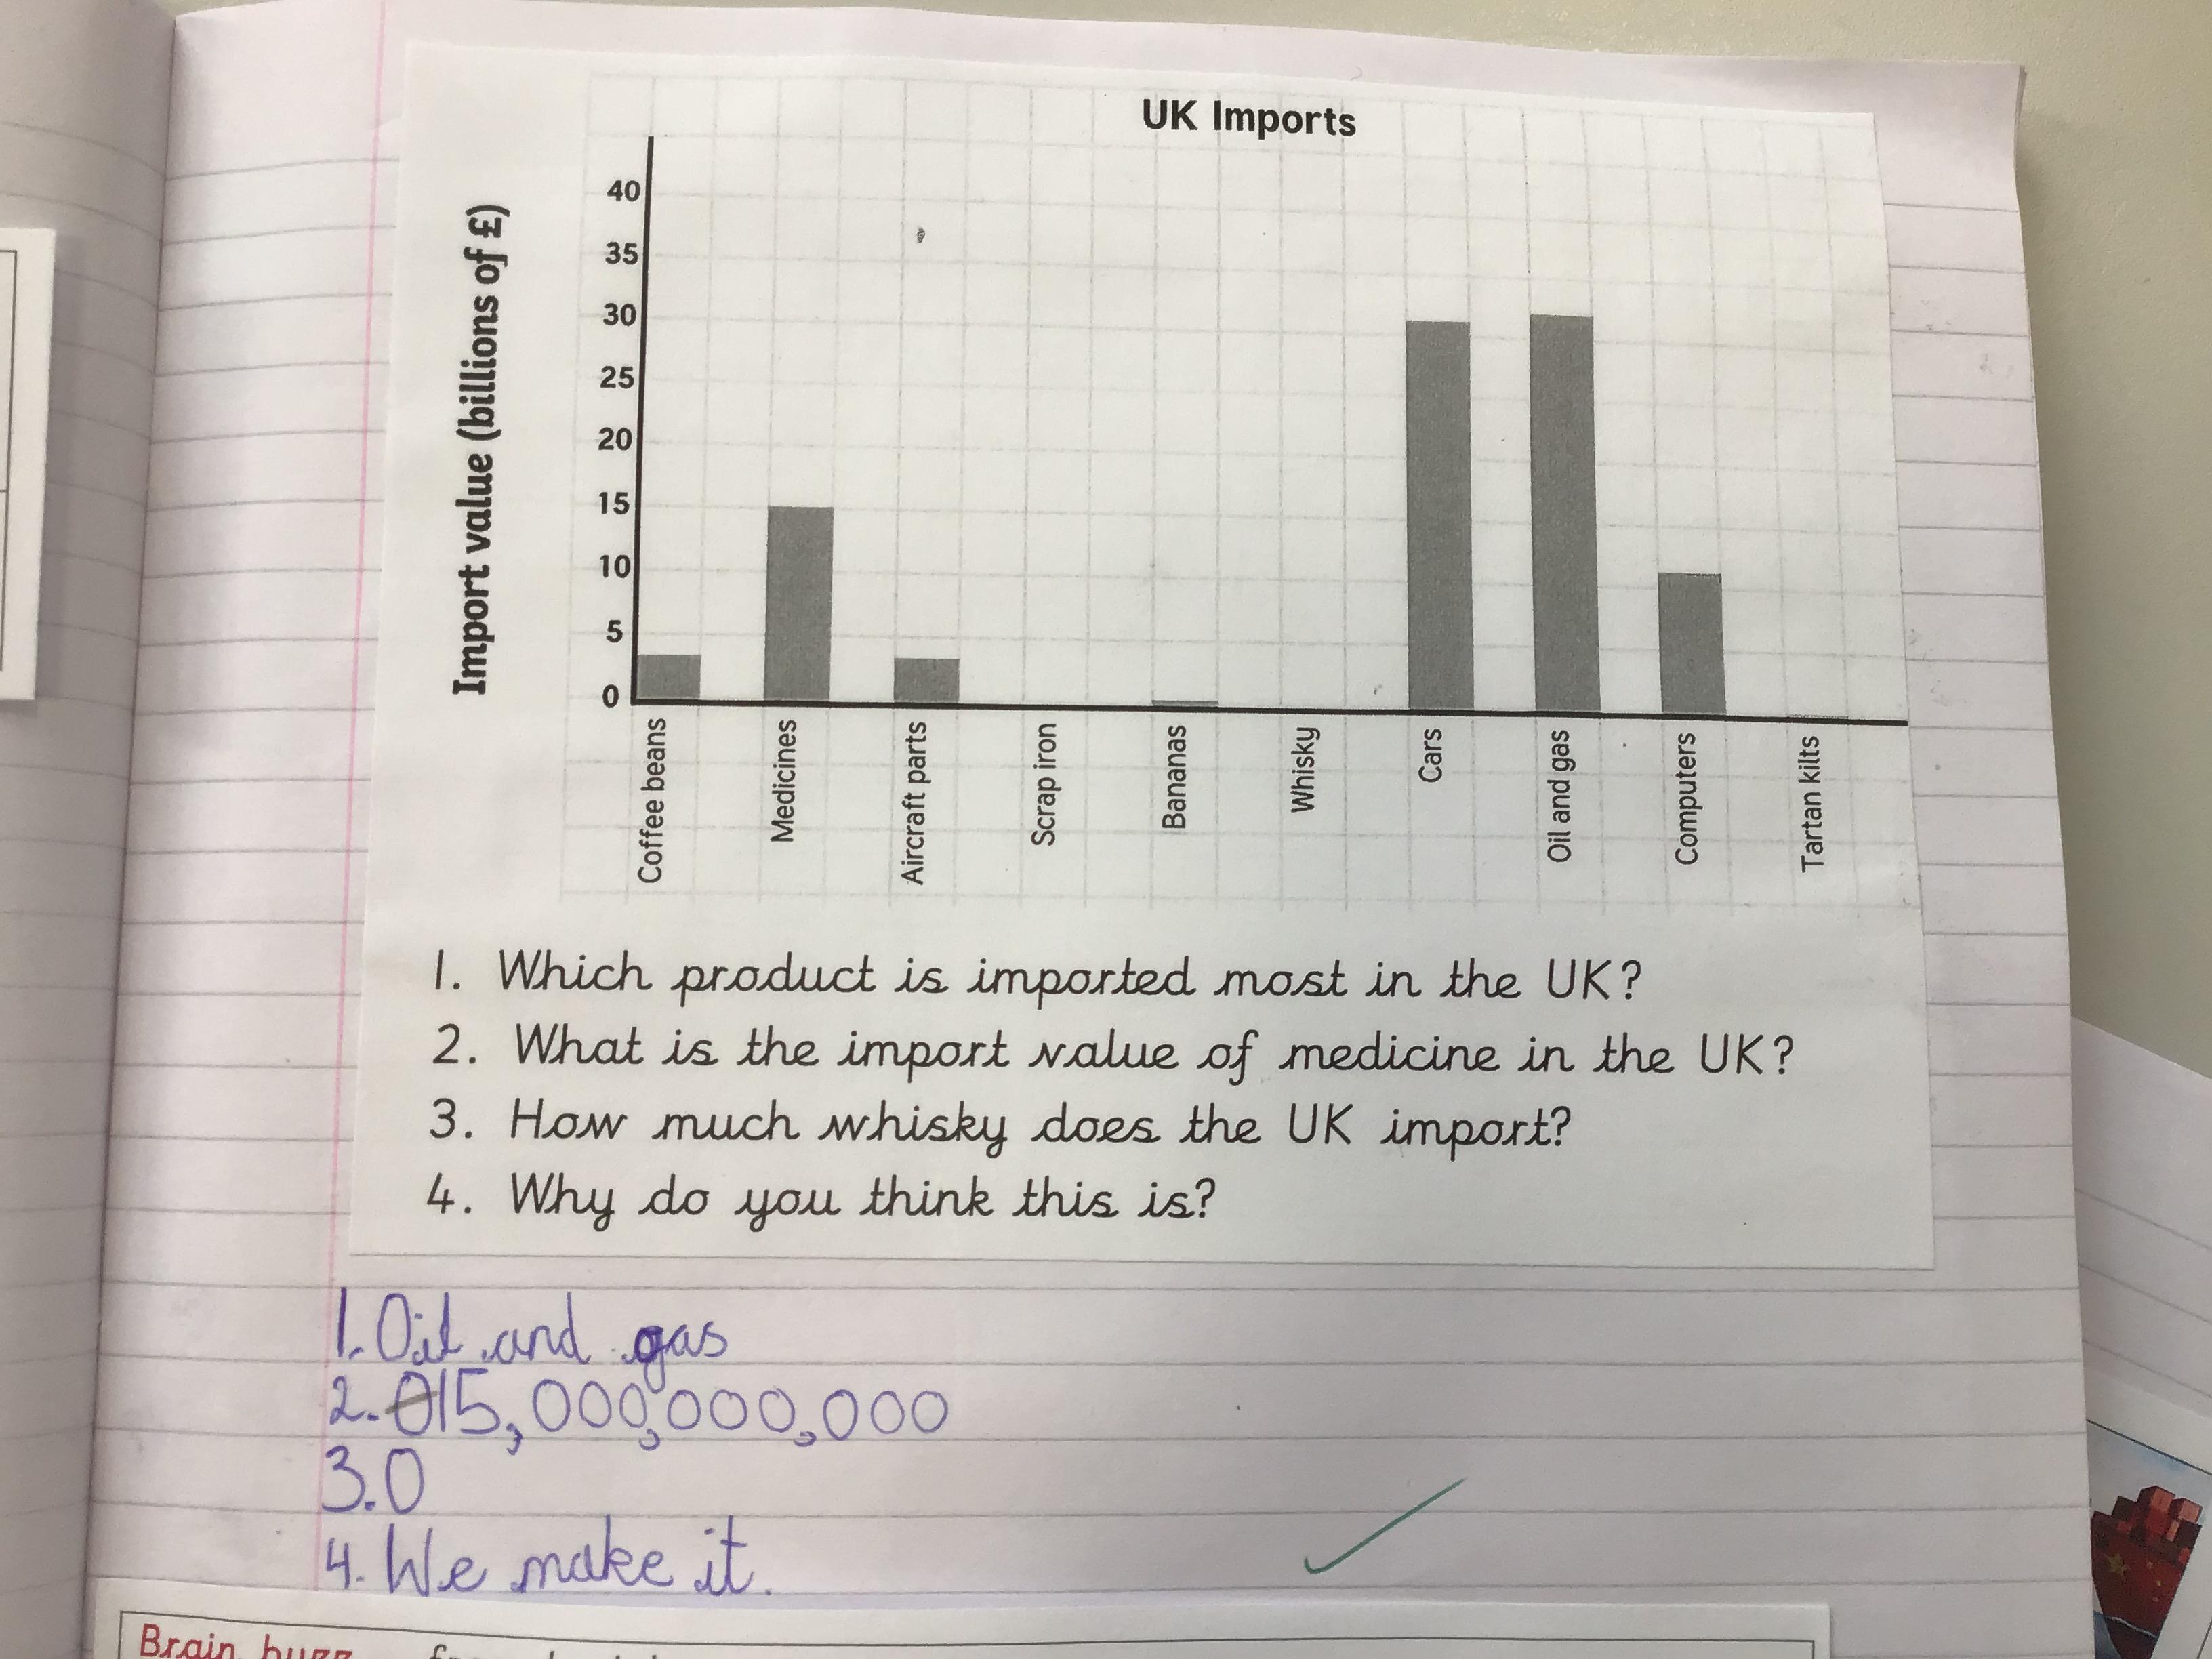 UK Imports
Import value (billions of £)
40
35
30
25
20
15
10
5
0
Coffee beans
Medicines
Aircraft parts
Scrap iron
Bananas
Whisky
Cars
Oil and gas
Computers
Tartan kilts
1. Which product is imported most in the UK?
2. What is the import value of medicine in the UK?
3. How much whisky does the UK import?
4. Why do you think this is?
1. Oil and gas
2. 015,000,000,000
3. 0
4. We make it.
Brain buzz